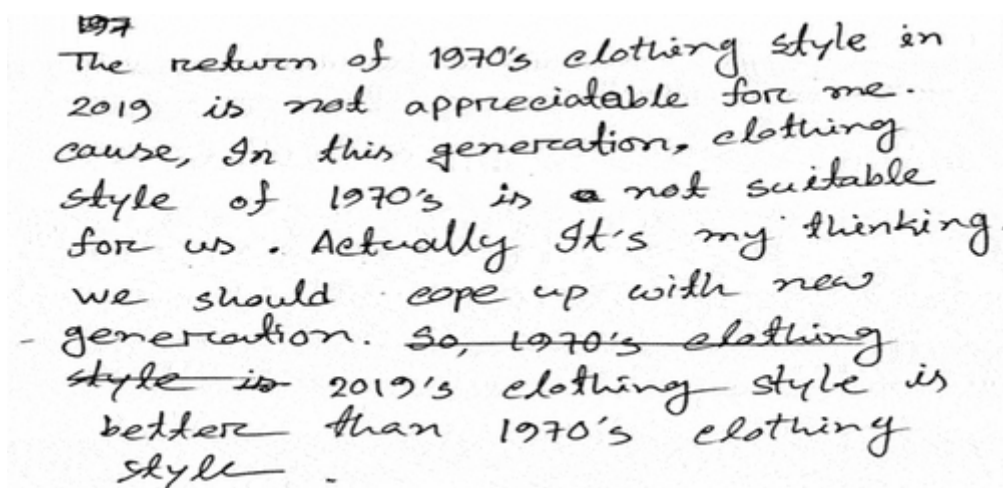 197
The return of 1970's clothing style in
2019 is not appreciatable for me.
cause, In this generation, clothing
style of 1970's is a not suitable
for us. Actually It's my thinking.
we should cope up with new
generation. So, 1970's clothing
style is 2019's clothing style is
better than 1970's clothing
style.